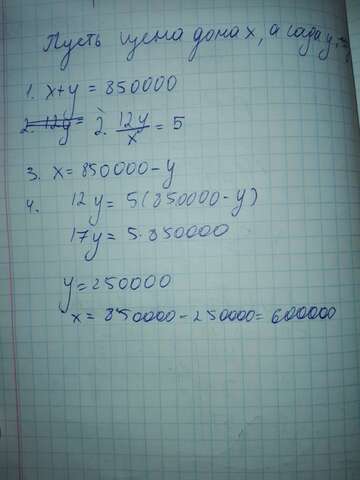 Пусть цена дома x, а сада y,
1. x+y = 850000
2. 12y = 2. 12y/x = 5
3. x = 850000 - y
4. 12y = 5(850000 - y)
17y = 5·850000
y = 250000
x = 850000 - 250000 = 600000